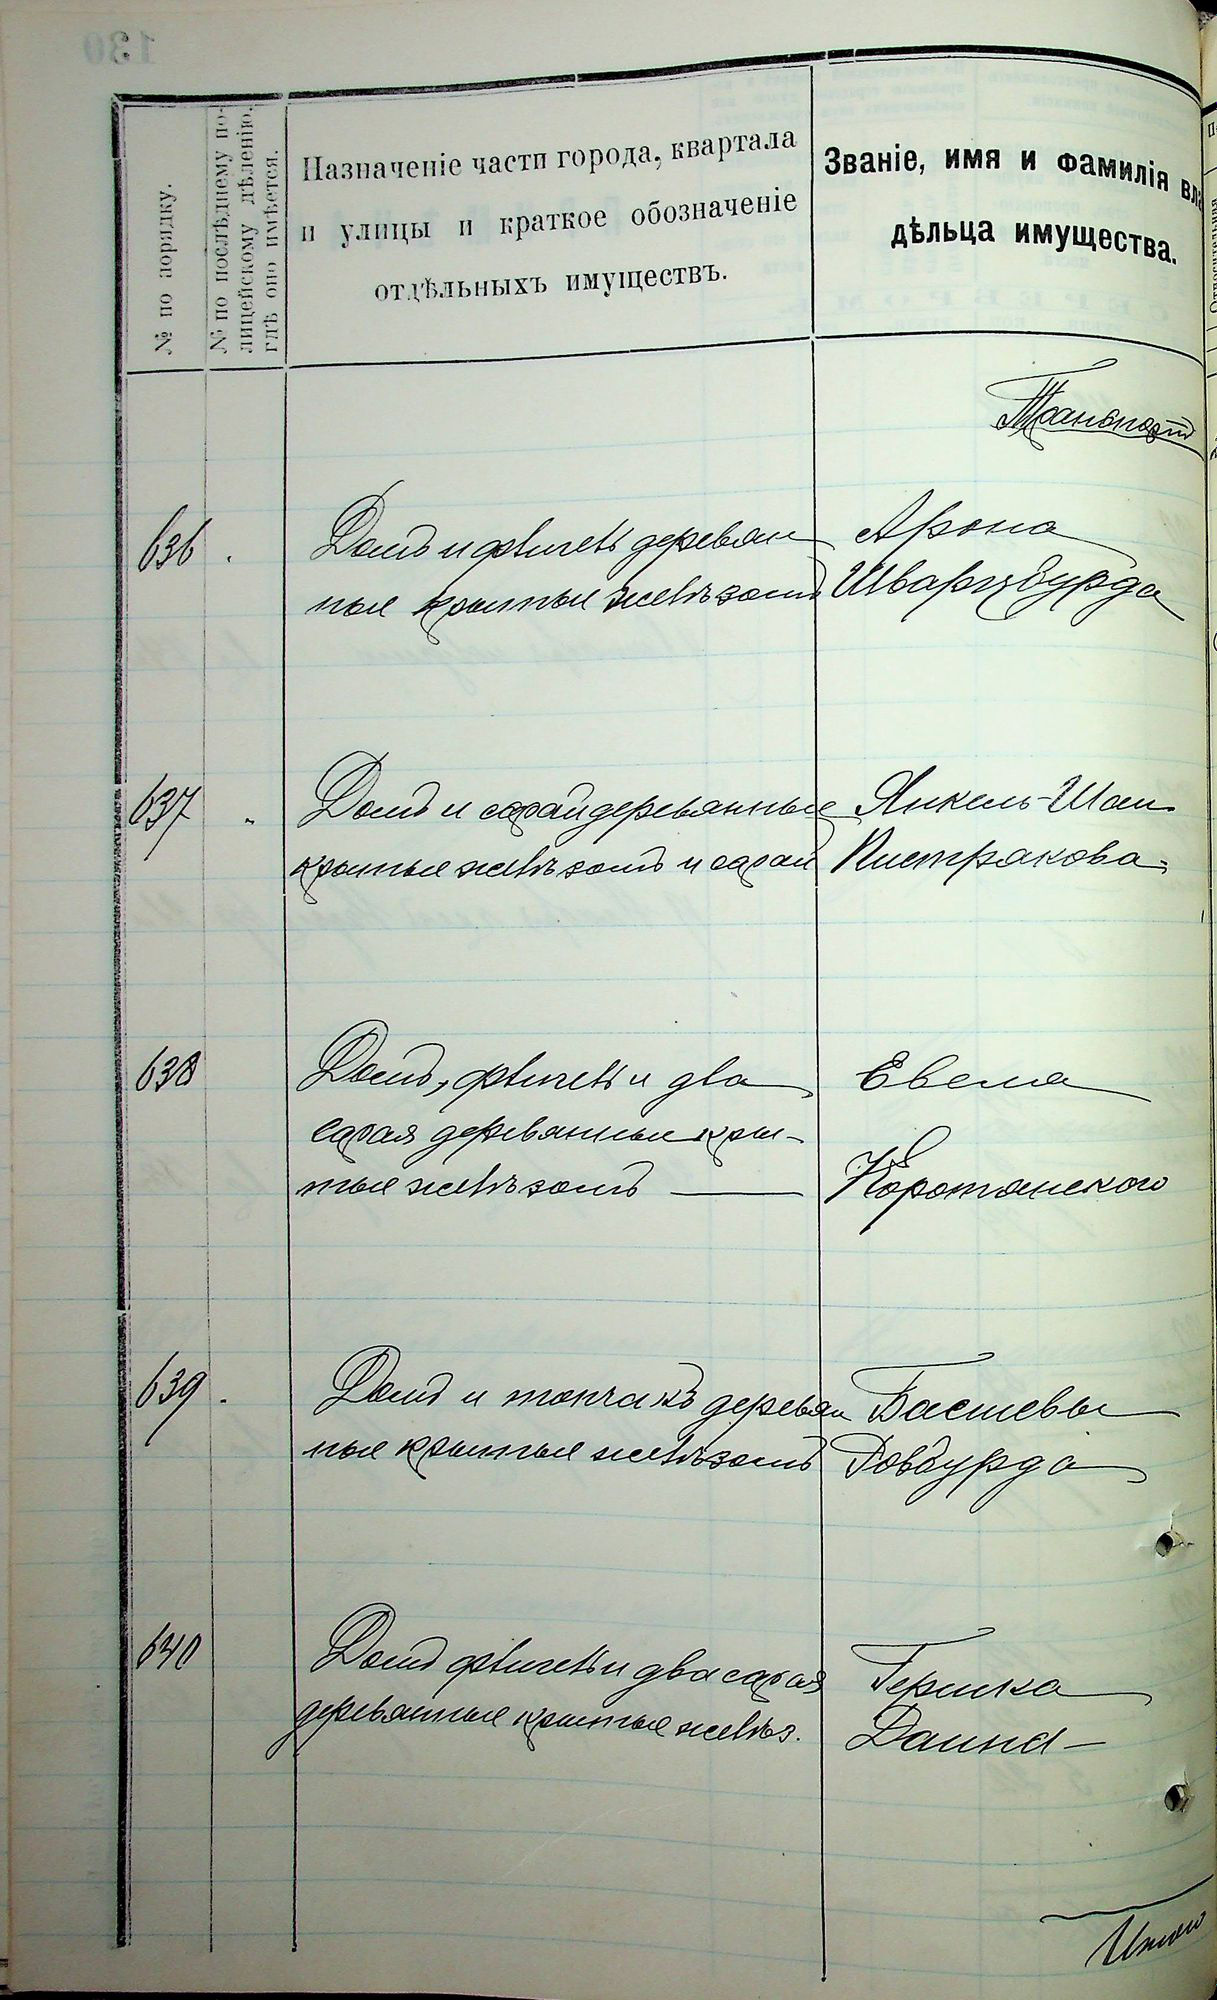 № по порядку.
№ по послѣднему по-
лицейскому дѣленію,
гдѣ оно имѣется.
Назначеніе части города, квартала
и улицы и краткое обозначеніе
отдѣльныхъ имуществъ.
Званіе, имя и фамилія вла
дѣльца имущества.
Транспортъ
636
Домъ и флигель деревян
ные крытые желѣзомъ
Арона
Шварцбурда
637
Домъ и сарай деревянные
крытые желѣзомъ и сарай
Янкель-Шаи
Пистракова
638
Домъ, флигель и два
сарая деревянные кры-
тые желѣзомъ
Евеля
Коротянского
639
Домъ и топчакъ деревян
ные крытые желѣзомъ
Басшевы
Говбурда
640
Домъ флигель и два сарая
деревянные крытые желѣз.
Гершка
Даина
Итого